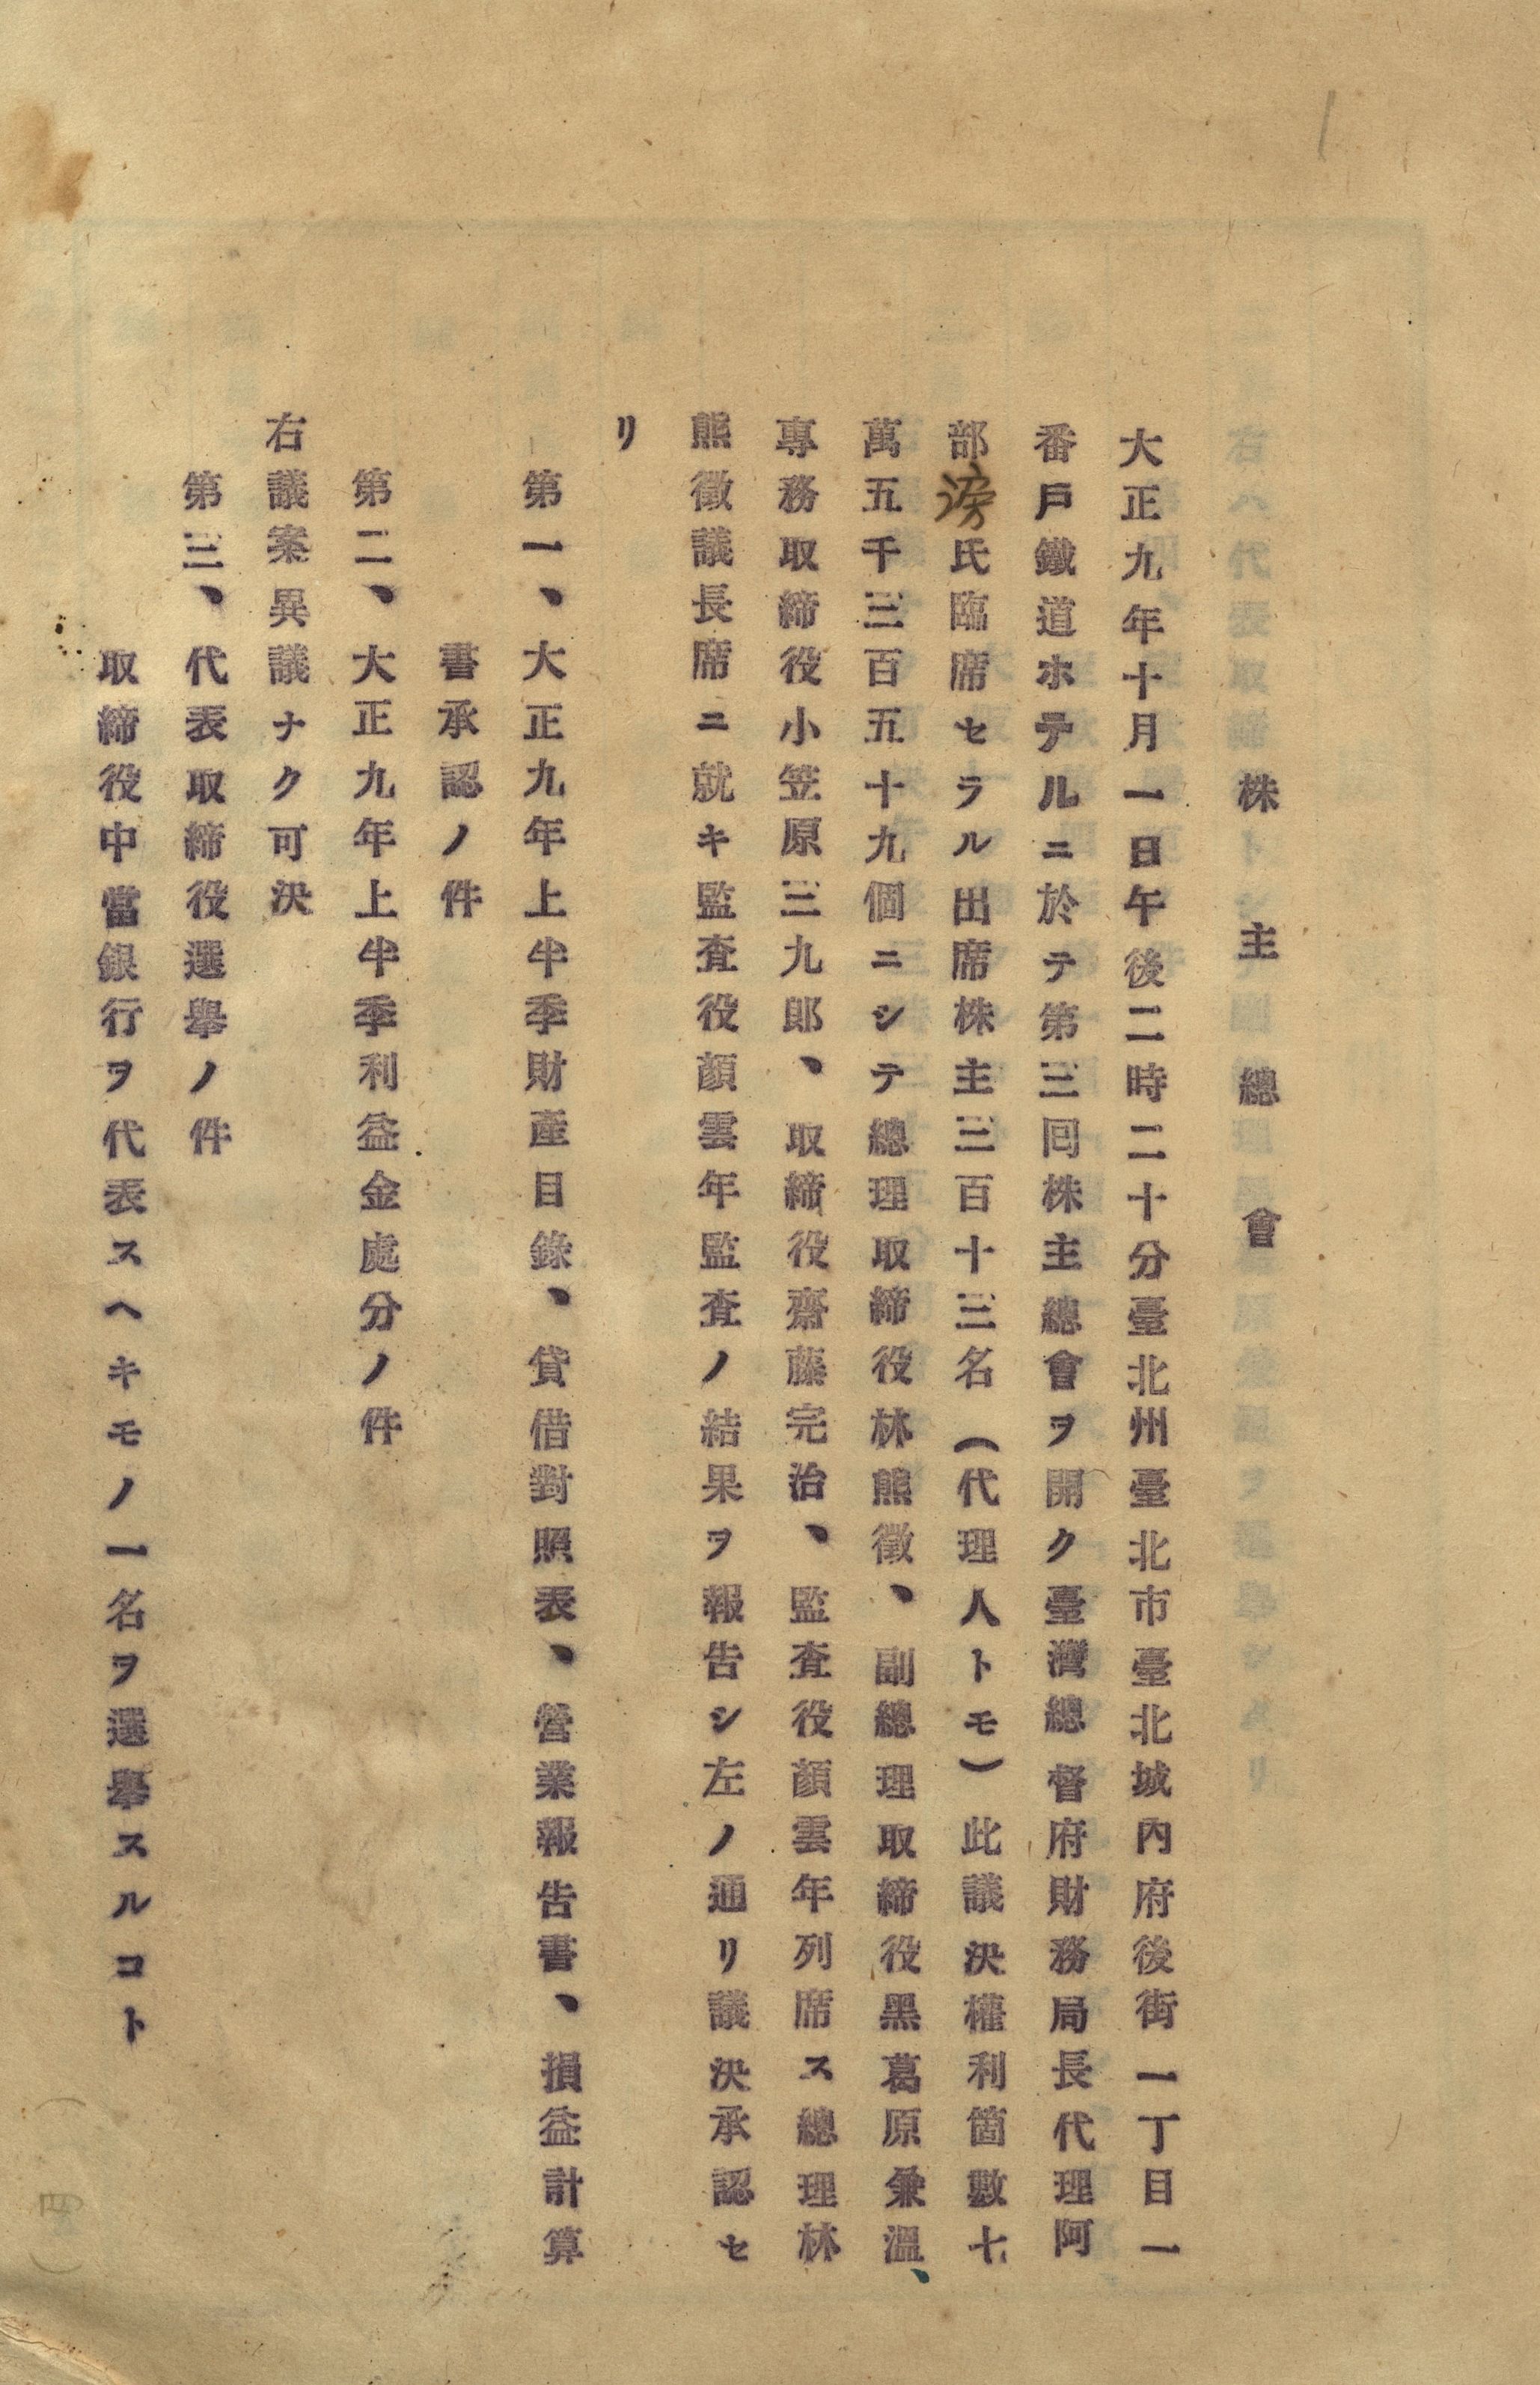 株主總會
大正九年十月一日午後二時二十分臺北州臺北市臺北城內府後街一丁目一
番戶鐵道ホテルニ於テ第三回株主總會ヲ開ク臺灣總督府財務局長代理阿
部滂氏臨席セラル出席株主三百十三名(代理人トモ)此議決權利箇數七
萬五千三百五十九個ニシテ總理取締役林熊徵、副總理取締役黑葛原兼溫、
專務取締役小笠原三九郎、取締役齋藤完治、監査役顏雲年列席ス總理林
熊徵議長席ニ就キ監査役顏雲年監査ノ結果ヲ報告シ左ノ通リ議決承認セ
リ
第一、大正九年上半季財產目錄、貸借對照表、營業報告書、損益計算
書承認ノ件
第二、大正九年上半季利益金處分ノ件
右議案異議ナク可決
第三、代表取締役選擧ノ件
取締役中當銀行ヲ代表スヘキモノ一名ヲ選擧スルコト